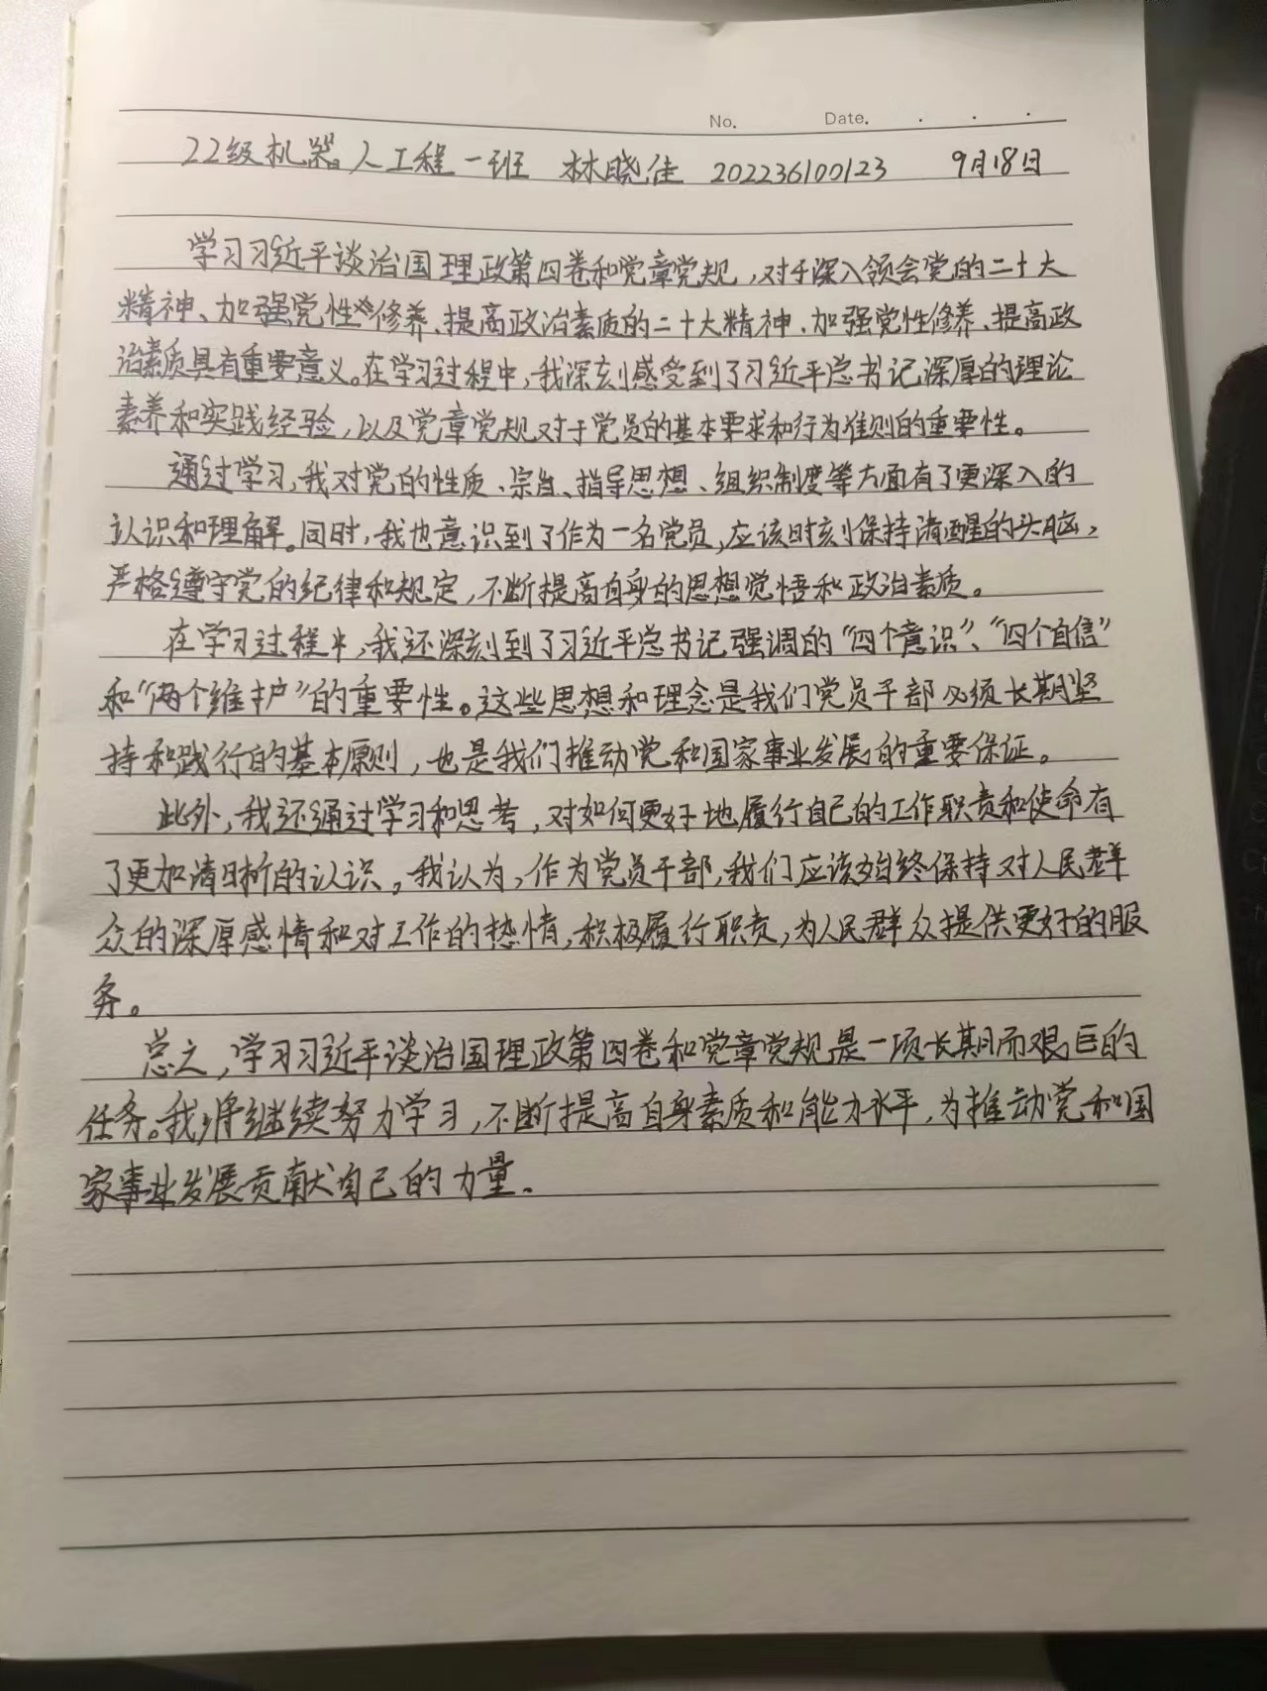 No.
Date.
22级机器人工程一班 林晓佳 202236100123 9月18日
学习习近平谈治国理政第四卷和党章党规,对于深入领会党的二十大
精神、加强党性修养、提高政治素质的二十大精神、加强党性修养、提高政
治素质具有重要意义。在学习过程中,我深刻感受到了习近平总书记深厚的理论
素养和实践经验,以及党章党规对于党员的基本要求和行为准则的重要性。
通过学习,我对党的性质、宗旨、指导思想、组织制度等方面有了更深入的
认识和理解。同时,我也意识到了作为一名党员,应该时刻保持清醒的头脑,
严格遵守党的纪律和规定,不断提高自身的思想觉悟和政治素质。
在学习过程中,我还深刻到了习近平总书记强调的“四个意识”、“四个自信”
和“两个维护”的重要性。这些思想和理念是我们党员干部必须长期坚
持和践行的基本原则,也是我们推动党和国家事业发展的重要保证。
此外,我还通过学习和思考,对如何更好地履行自己的工作职责和使命有
了更加清晰的认识。我认为,作为党员干部,我们应该始终保持对人民群
众的深厚感情和对工作的热情,积极履行职责,为人民群众提供更好的服
务。
总之,学习习近平谈治国理政第四卷和党章党规是一项长期而艰巨的
任务。我将继续努力学习,不断提高自身素质和能力水平,为推动党和国
家事业发展贡献自己的力量.